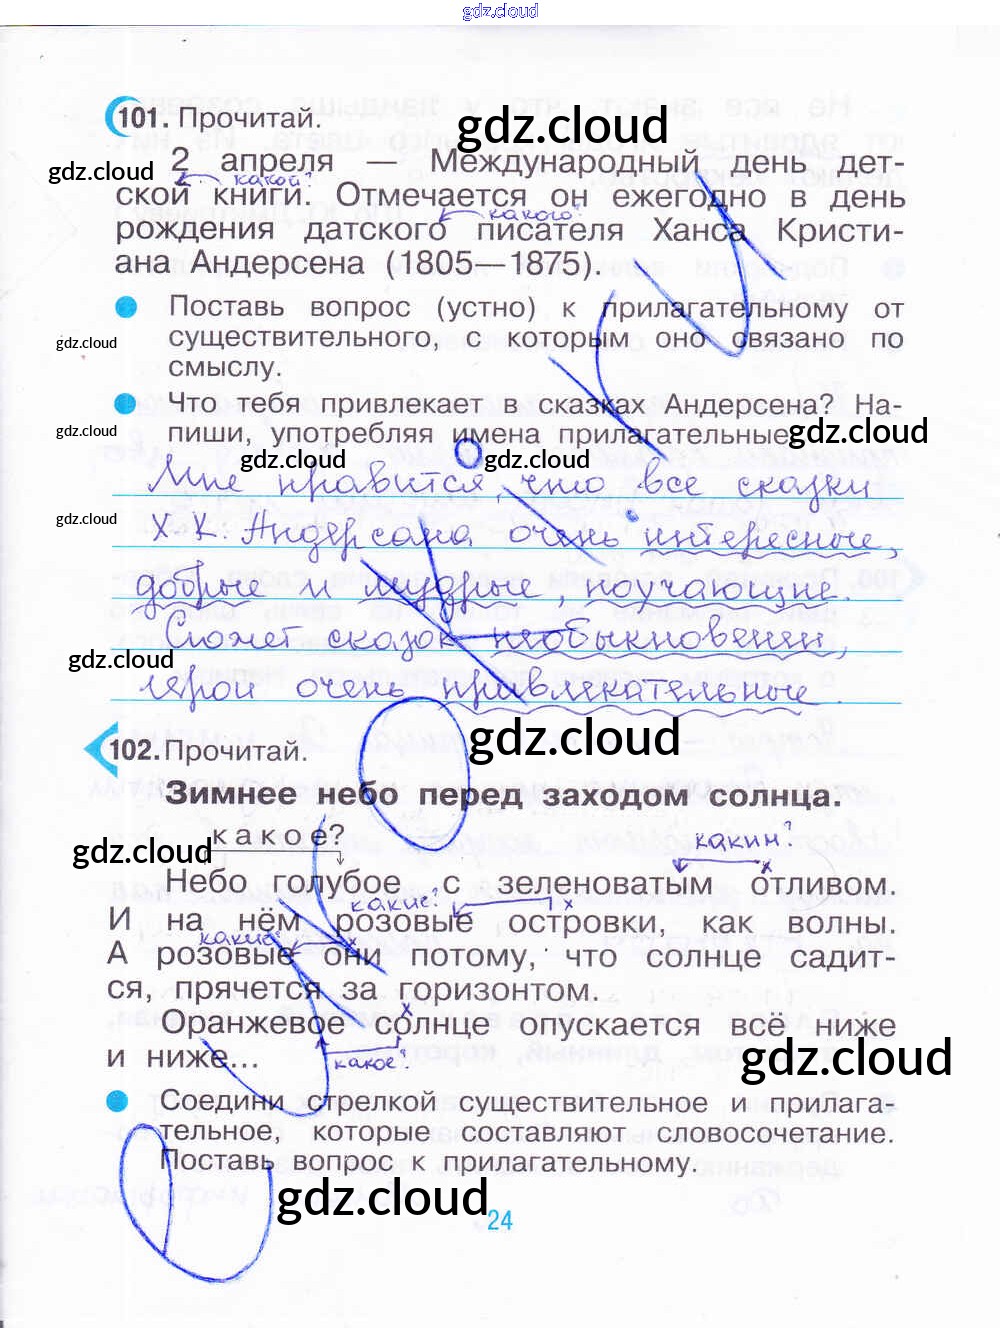 gdz.cloud
101. Прочитай.
gdz.cloud
gdz.cloud
2 апреля — Международный день дет-
какой?
ской книги. Отмечается он ежегодно в день
какого?
рождения датского писателя Ханса Кристи-
ана Андерсена (1805— 1875).
Поставь вопрос (устно) к прилагательному от
gdz.cloud
существительного, с которым оно связано по
смыслу.
Что тебя привлекает в сказках Андерсена? На-
gdz.cloud
пиши, употребляя имена прилагательные.
gdz.cloud
gdz.cloud
gdz.cloud
Мне нравится, что все сказки
gdz.cloud
Х.К. Андерсана очень интересные,
добрые и мудрые, поучающие.
Сюжет сказок необыкновенен,
gdz.cloud
герои очень привлекательные.
gdz.cloud
102. Прочитай.
Зимнее небо перед заходом солнца.
какое?
каким?
gdz.cloud
Небо голубое с зеленоватым отливом.
какие?
И на нём розовые островки, как волны.
какие?
А розовые они потому, что солнце садит-
ся, прячется за горизонтом.
Оранжевое солнце опускается всё ниже
и ниже...
какое?
gdz.cloud
Соедини стрелкой существительное и прилага-
тельное, которые составляют словосочетание.
Поставь вопрос к прилагательному.
gdz.cloud
24